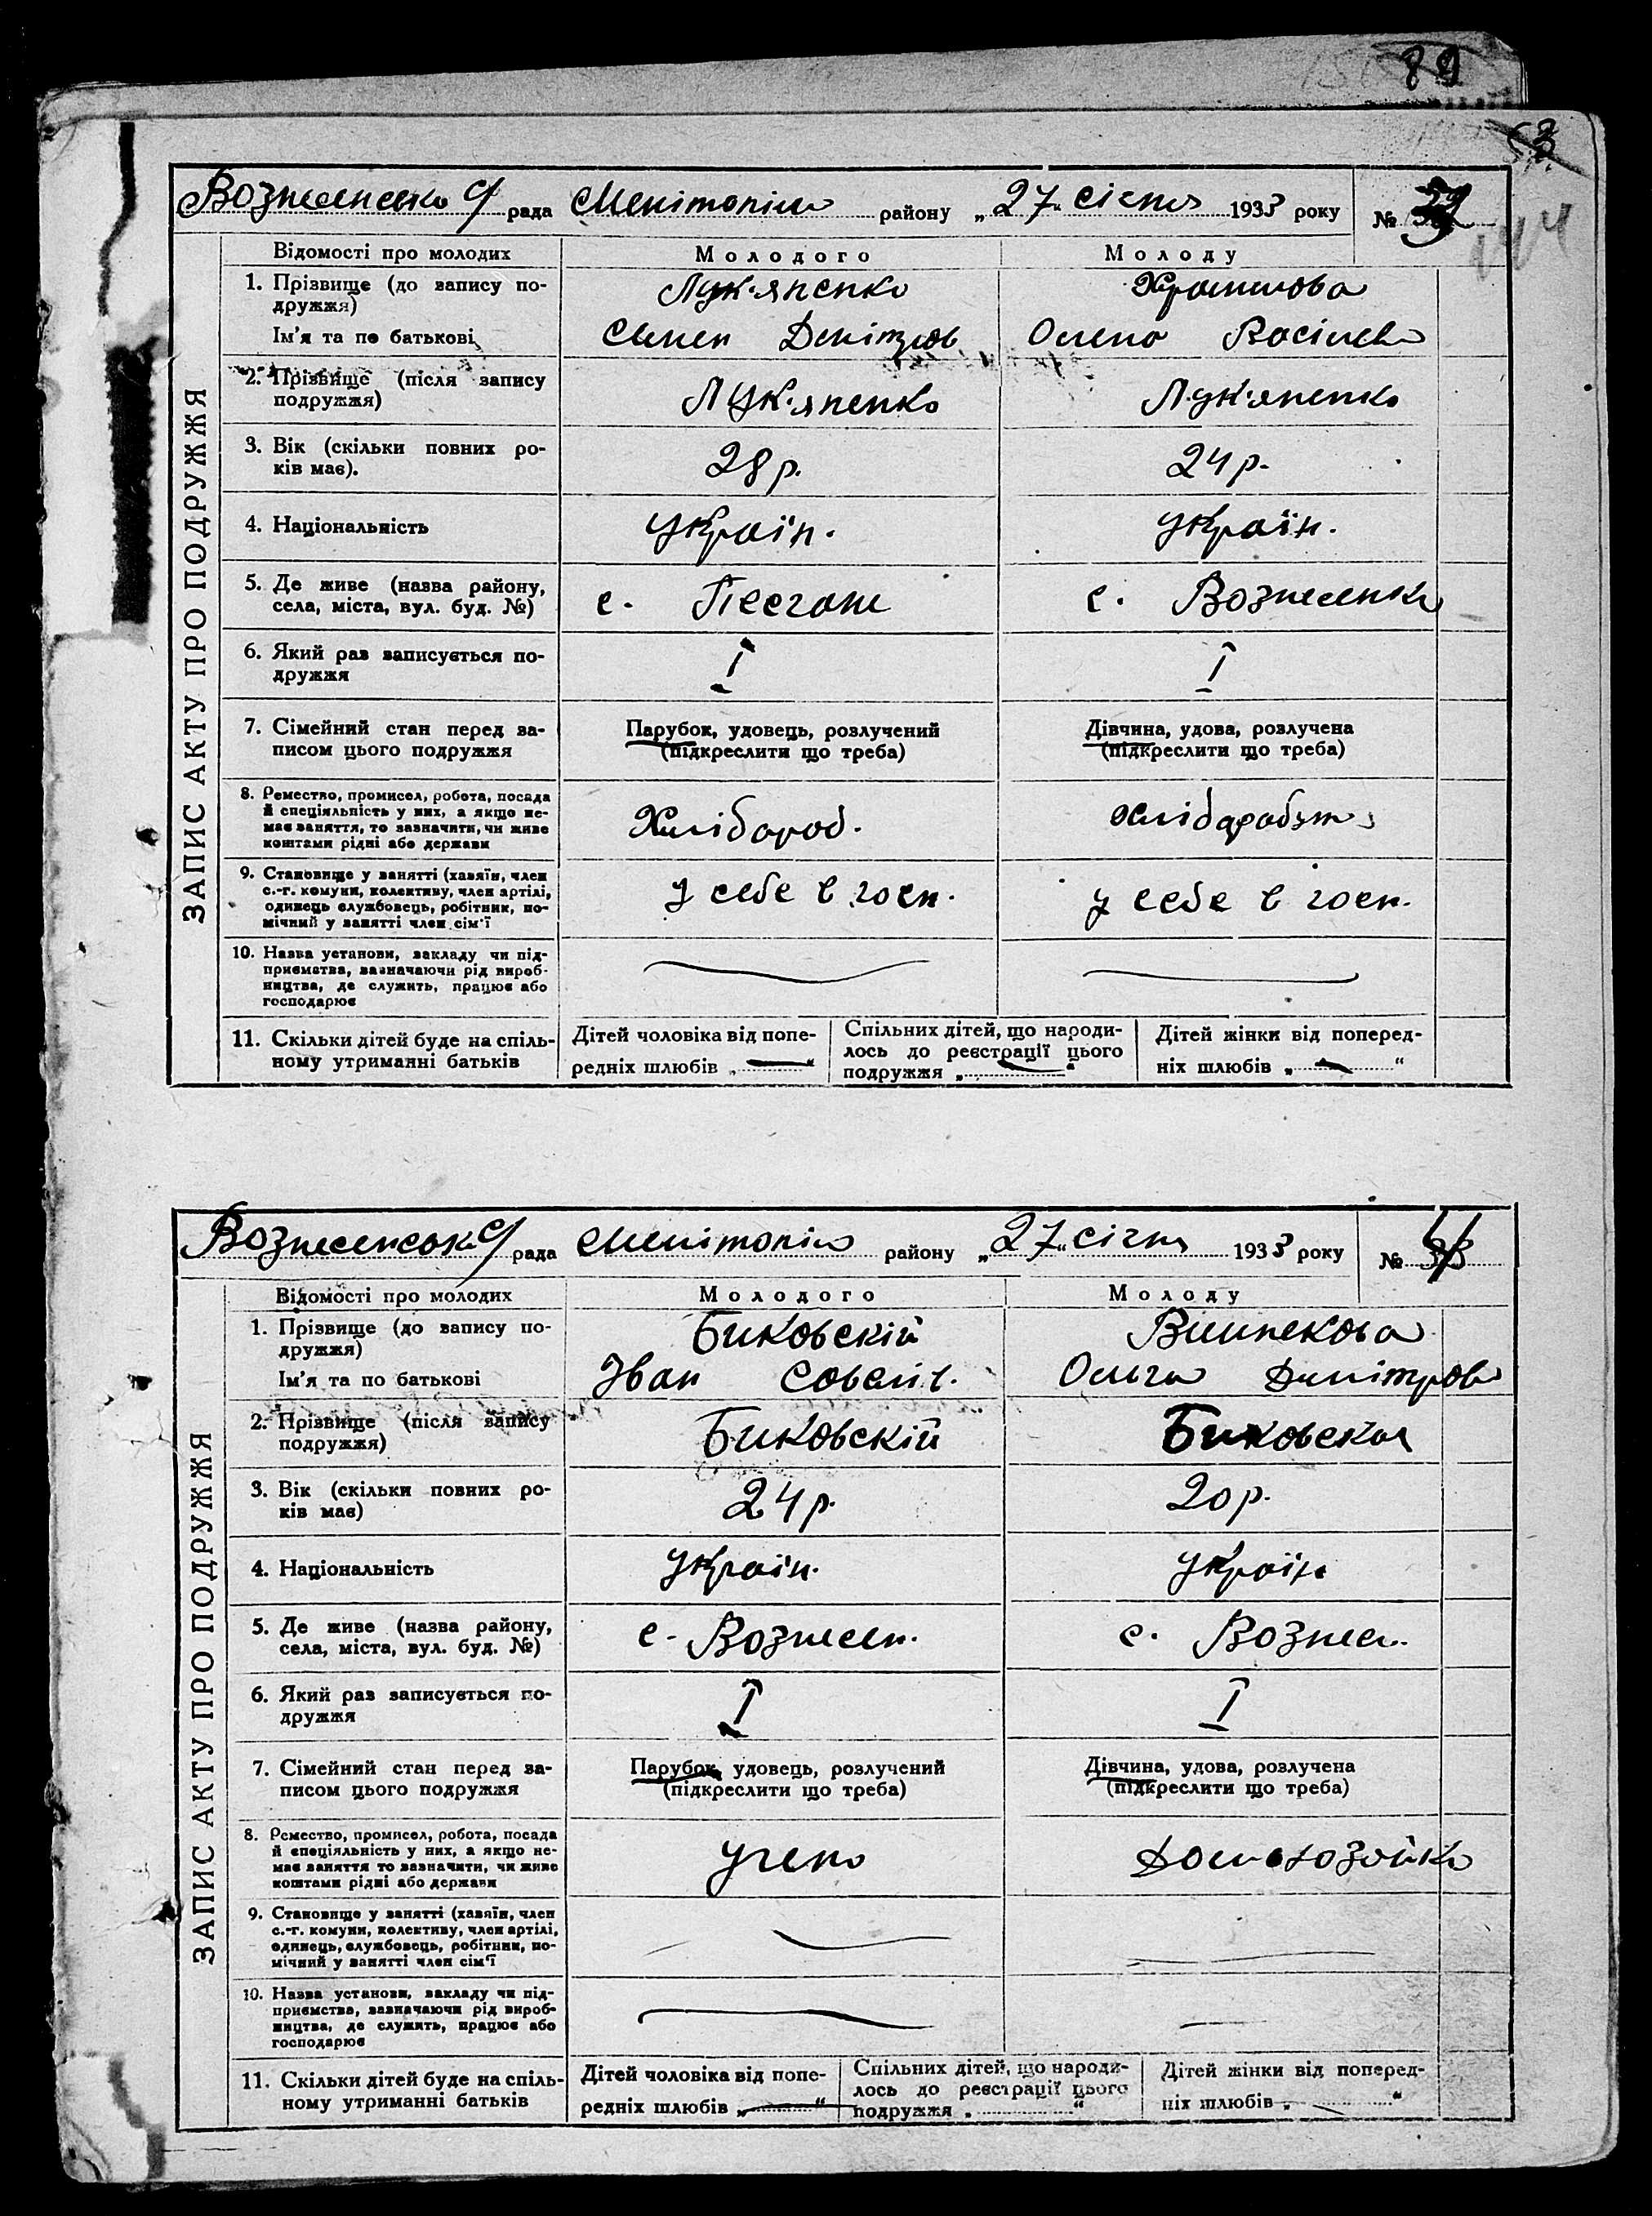 89
Вознесенська рада Мелітопільс району „27„ січня 1933 року №
Відомості про молодих Молодого Молоду
1. Прізвище (до запису по-
дружжя)
Лук'яненко
Ім'я та по батькові Семен Дмітров Олена Васілева
2. Прізвище (після запису
подружжя)
Лук'яненко Лук'яненко
3. Вік (скільки повних ро-
ків має).
28 р. 24 р.
4. Національність Україн. Україн.
5. Де живе (назва району,
села, міста, вул. буд. №)
с. Песчане с. Вознесенка
6. Який раз записується по-
дружжя
I I
7. Сімейний стан перед за-
писом цього подружжя
Парубок, удовець, розлучений
(підкреслити що треба)
Дівчина, удова, розлучена
(підкреслити що треба)
8. Ремество, промисел, робота, посада
й спеціяльність у них, а якщо не-
має заняття, то зазначити, чи живе
коштами рідні або держави
Хлібороб.
9. Становище у занятті (хазяїн, член
с.-г. комуни, колективу, член артілі,
одинець службовець, робітник, по-
мічний у занятті член сім'ї
у себе в госп. у себе в госп.
10. Назва установи, закладу чи під-
приємства, зазначаючи рід вироб-
ництва, де служить, працює або
господарює
11. Скільки дітей буде на спіль-
ному утриманні батьків
Дітей чоловіка від попе-
редніх шлюбів „ — “
Спільних дітей, що народи-
лось до реєстрації цього
подружжя „ — “
Дітей жінки від поперед-
ніх шлюбів „ — “
ЗАПИС АКТУ ПРО ПОДРУЖЖЯ
Вознесенська рада Мелітопільс району „27„ січня 1933 року №
Відомості про молодих Молодого Молоду
1. Прізвище (до запису по-
дружжя)
Биковскій
Ім'я та по батькові Іван Савелів. Ольга Дмітрова
2. Прізвище (після запису
подружжя)
Биковскій Биковская
3. Вік (скільки повних ро-
ків має)
24 р. 20 р.
4. Національність Україн. Україн
5. Де живе (назва району,
села, міста, вул. буд. №)
с. Вознесен. с. Вознес.
6. Який раз записується по-
дружжя
I I
7. Сімейний стан перед за-
писом цього подружжя
Парубок, удовець, розлучений
(підкреслити що треба)
Дівчина, удова, розлучена
(підкреслити що треба)
8. Ремество, промисел, робота, посада
й спеціяльність у них, а якщо не-
має заняття то зазначити, чи живе
коштами рідні або держави
9. Становище у занятті (хазяїн, член
с.-г. комуни, колективу, член артілі,
одинець, службовець, робітник, по-
мічний у занятті член сім'ї
10. Назва установи, закладу чи під-
приємства, зазначаючи рід вироб-
ництва, де служить, працює або
господарює
11. Скільки дітей буде на спіль-
ному утриманні батьків
Дітей чоловіка від попе-
редніх шлюбів „ — “
Спільних дітей, що народи-
лось до реєстрації цього
подружжя „ “
Дітей жінки від поперед-
ніх шлюбів „ — “
ЗАПИС АКТУ ПРО ПОДРУЖЖЯ